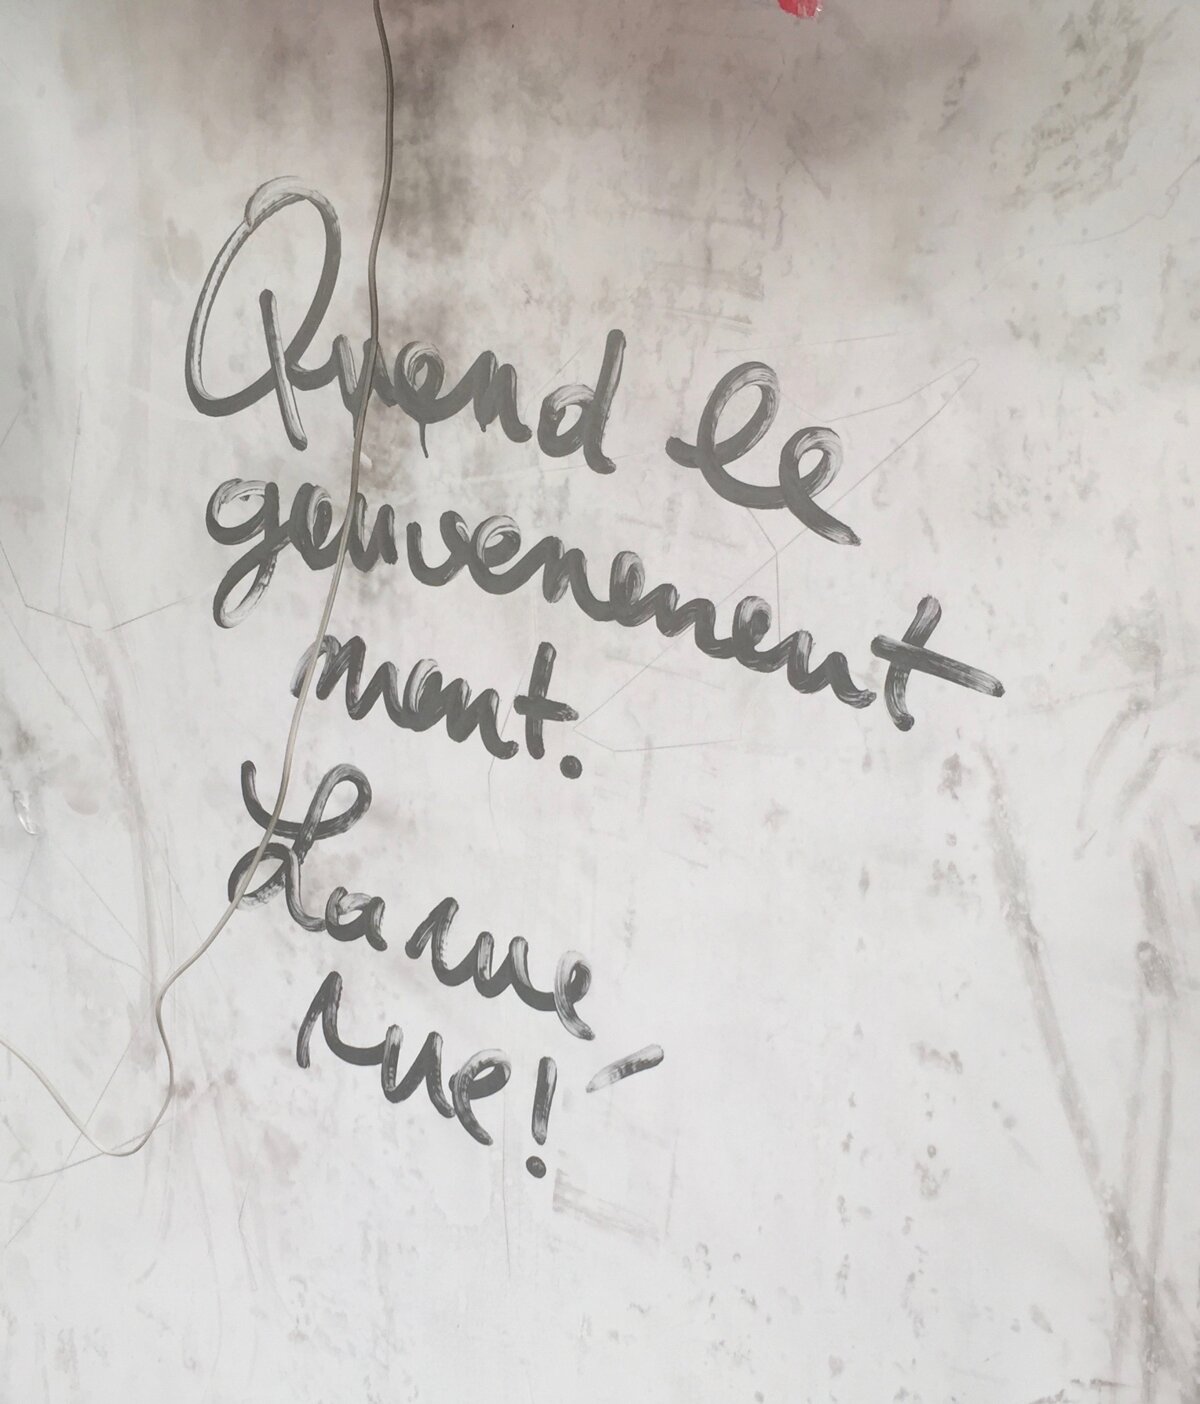 Quand le
gouvenement
ment.
La rue
rue! -